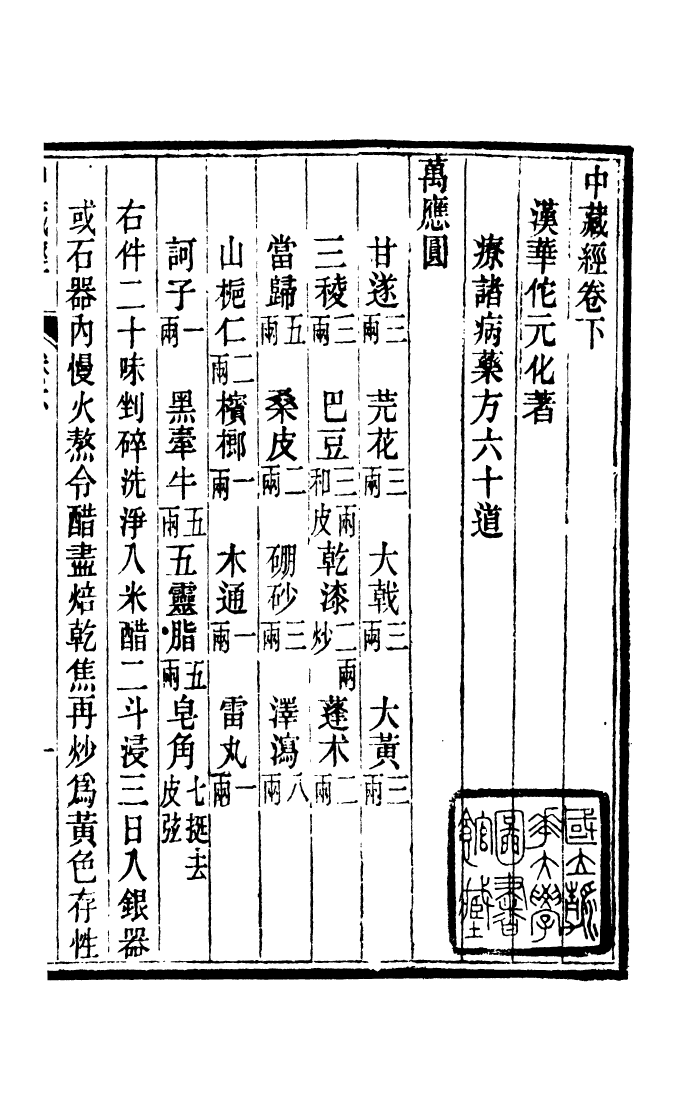 中藏經卷下
漢華佗元化著
療諸病藥方六十道
萬應圓
甘遂三兩 芫花三兩 大戟三兩 大黃三兩
三稜三兩 巴豆三兩和皮 乾漆二兩炒 蓬朮二兩
當歸五兩 桑皮二兩 硼砂三兩 澤瀉八兩
山梔仁二兩 檳榔一兩 木通一兩 雷丸一兩
訶子一兩 黑牽牛五兩 五靈脂五兩 皂角七挺去皮弦
右件二十味剉碎洗淨入米醋二斗浸三日入銀器
或石器內慢火熬令醋盡焙乾焦再炒爲黃色存性